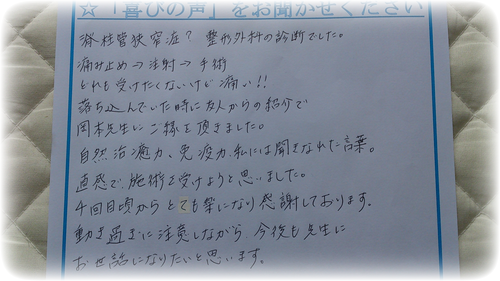 ☆「喜びの声」をお聞かせください
脊柱管狭窄症? 整形外科の診断でした。
痛み止め→注射→手術
どれも受けたくないけど痛い!!
落ち込んでいた時に友人からの紹介で
岡本先生にご縁を頂きました。
自然治癒力、免疫力、私には聞きなれた言葉。
直感で、施術を受けようと思いました。
4回目頃からとても楽になり感謝しております。
動き過ぎに注意しながら今後も先生に
お世話になりたいと思います。